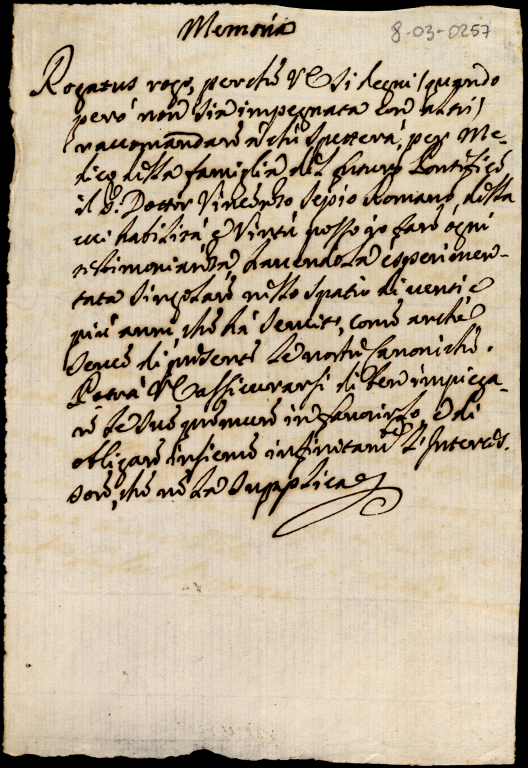 Memoria
8-03-0257
Rogatus rogo, perche VE si degni (quando
però non sia impegnata con altri)
raccomandare à chi spetterà, per Me-
dico della famiglia del futuro Pontefice
il S. Dottor Vincenzo Sepio Romano, della
cui habilità, e Virtù posso io fare ogni
testimonianza, havendola esperimen-
tata singolare nello spatio di venti e
più anni, che hà servito, come anche
serve di presente le nostre Canoniche.
Potrà VE assicurarsi di ben impiega-
re le sue premure in favorirlo, e di
obligare insieme infinitam.te l'Interces-
sore, che ne la supplica